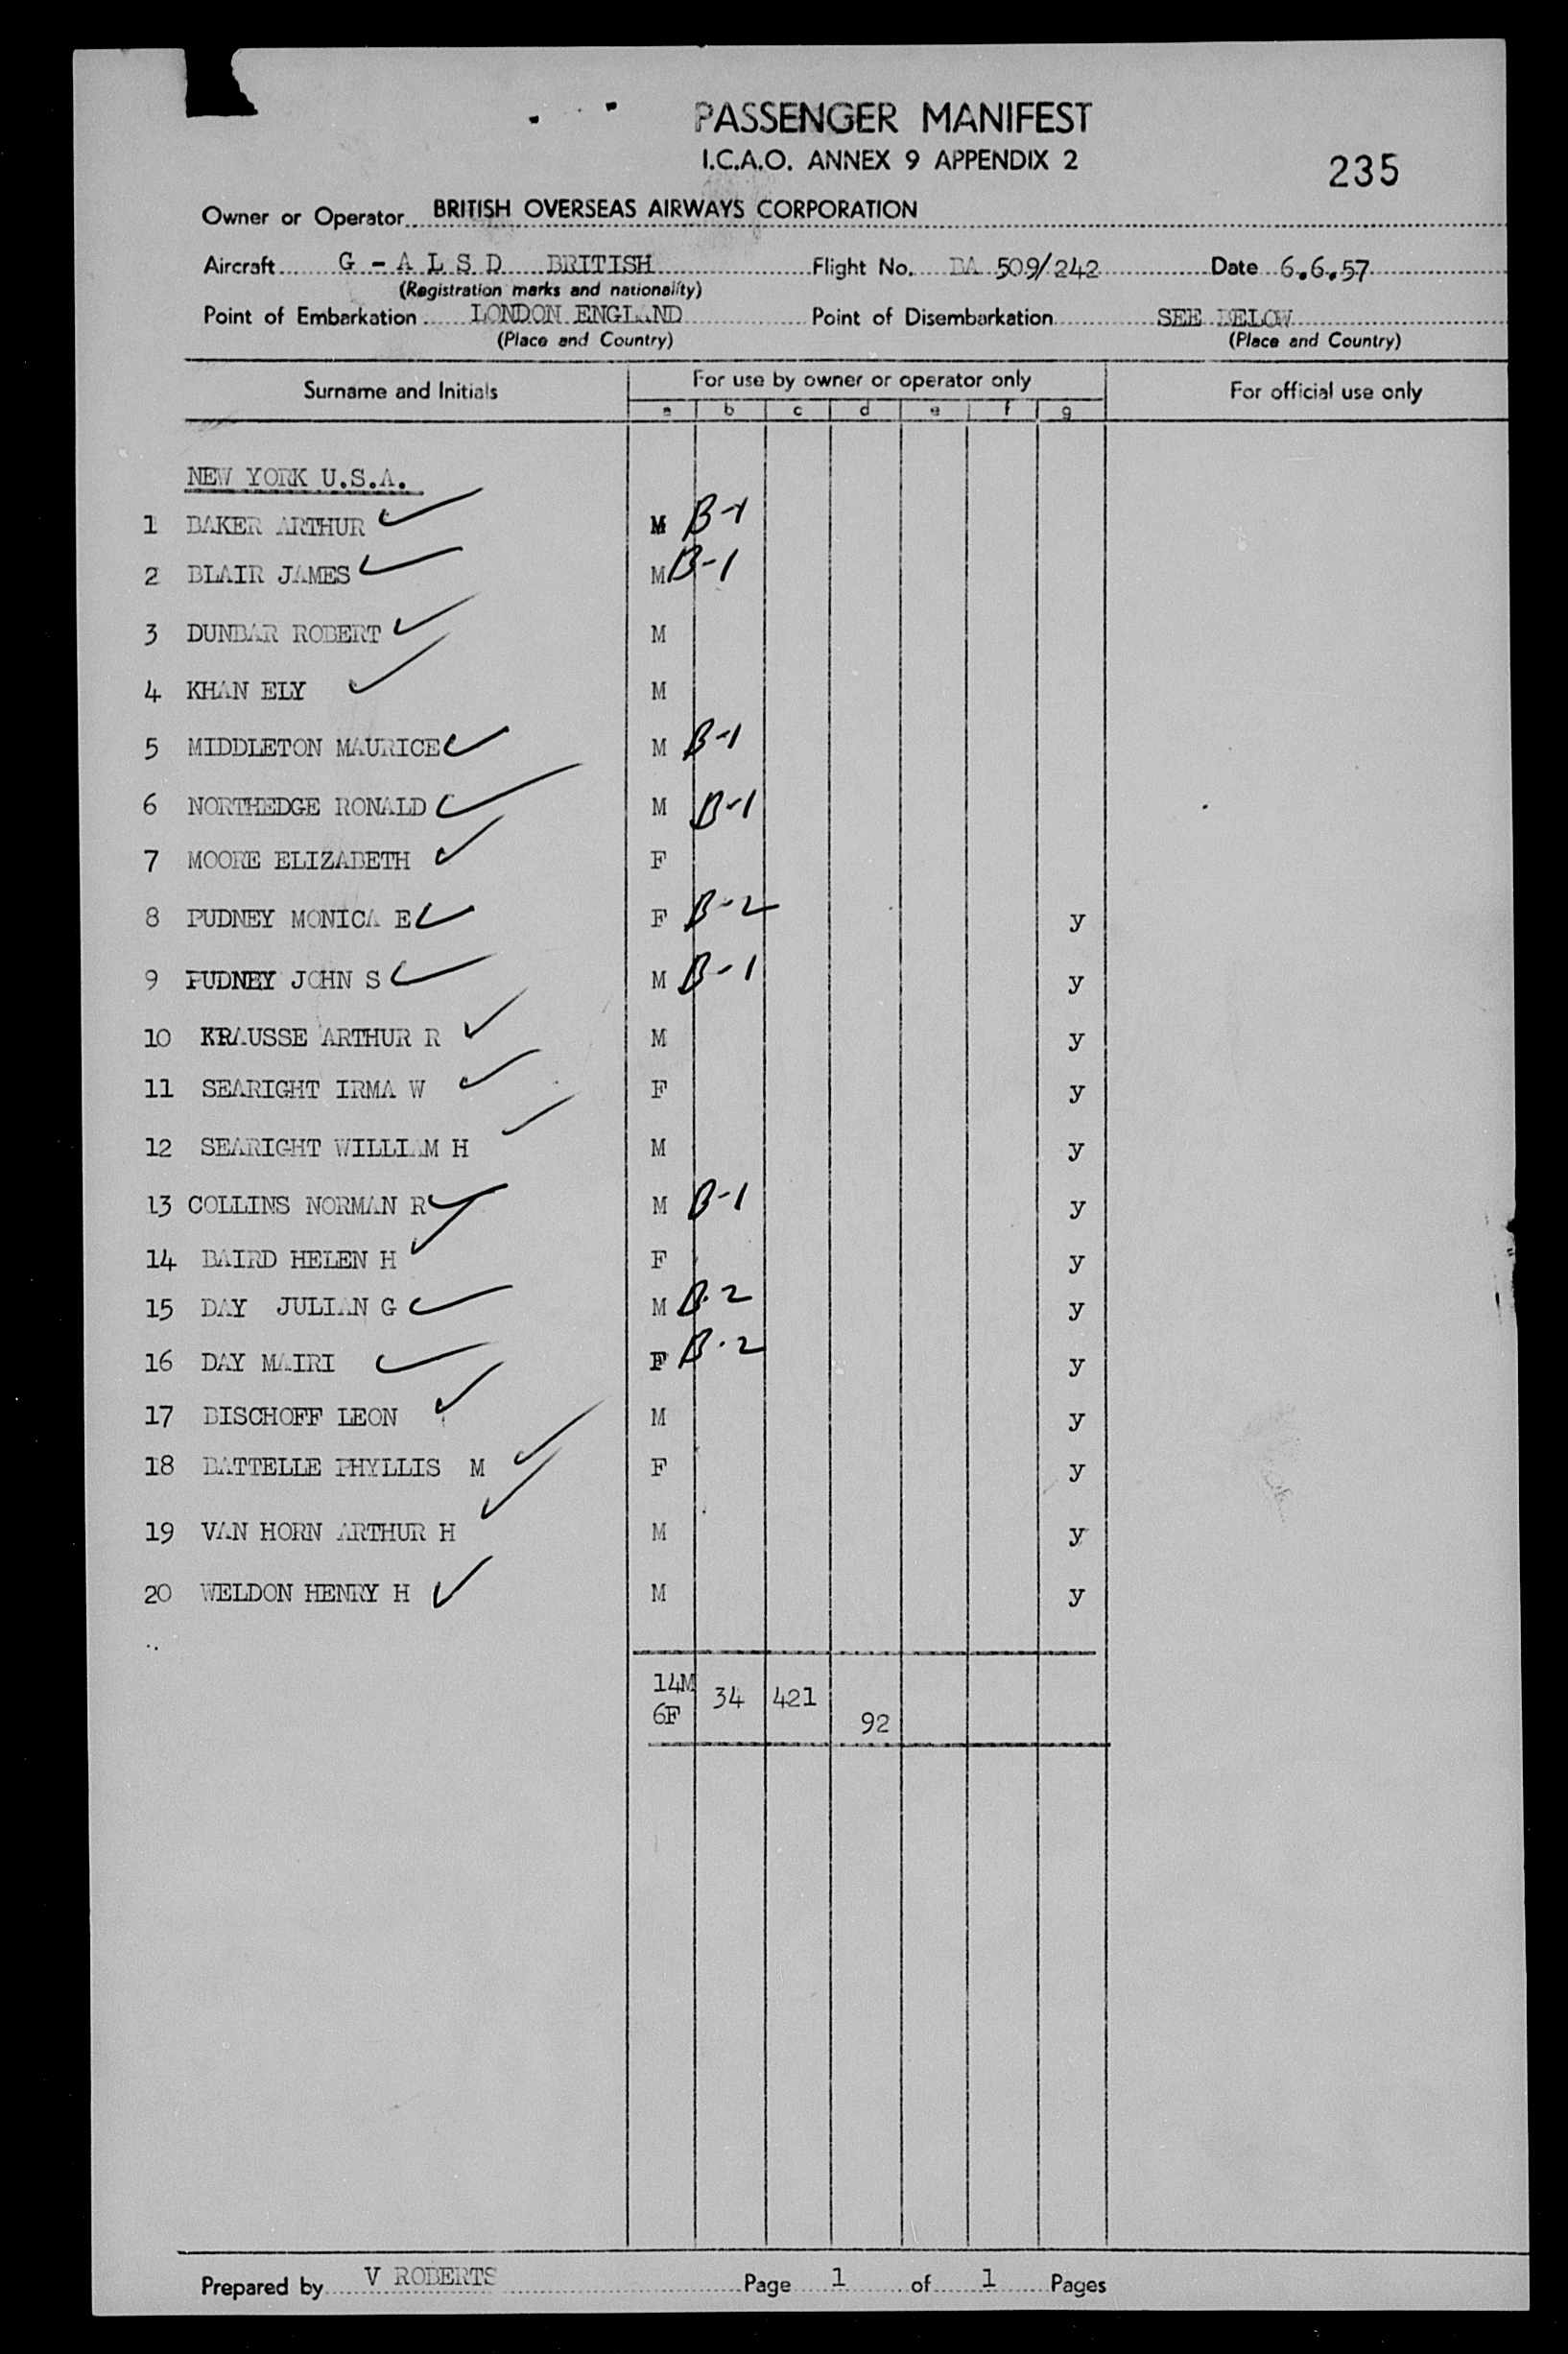 PASSENGER MANIFEST
I.C.A.O. ANNEX 9 APPENDIX 2
235
Owner or Operator BRITISH OVERSEAS AIRWAYS CORPORATION
Aircraft G - A L S D BRITISH Flight No. BA 509/242 Date 6.6.57
(Registration marks and nationality)
Point of Embarkation LONDON ENGLAND Point of Disembarkation SEE BELOW
(Place and Country) (Place and Country)
Surname and Initials For use by owner or operator only For official use only
a b c d e f g
NEW YORK U.S.A.
1 BAKER ARTHUR M B-1
2 BLAIR JAMES M B-1
3 DUNBAR ROBERT M
4 KHAN ELY M
5 MIDDLETON MAURICE M B-1
6 NORTHEDGE RONALD M B-1
7 MOORE ELIZABETH F
8 PUDNEY MONICA E F B-2 y
9 PUDNEY JOHN S M B-1 y
10 KRAUSSE ARTHUR R M y
11 SEARIGHT IRMA W F y
12 SEARIGHT WILLIAM H M y
13 COLLINS NORMAN R M B-1 y
14 BAIRD HELEN H F y
15 DAY JULIAN G M B-2 y
16 DAY MAIRI F B-2 y
17 BISCHOFF LEON M y
18 BATTELLE PHYLLIS M F y
19 VAN HORN ARTHUR H M y
20 WELDON HENRY H M y
14M 34 421
6F 92
Prepared by V ROBERTS Page 1 of 1 Pages